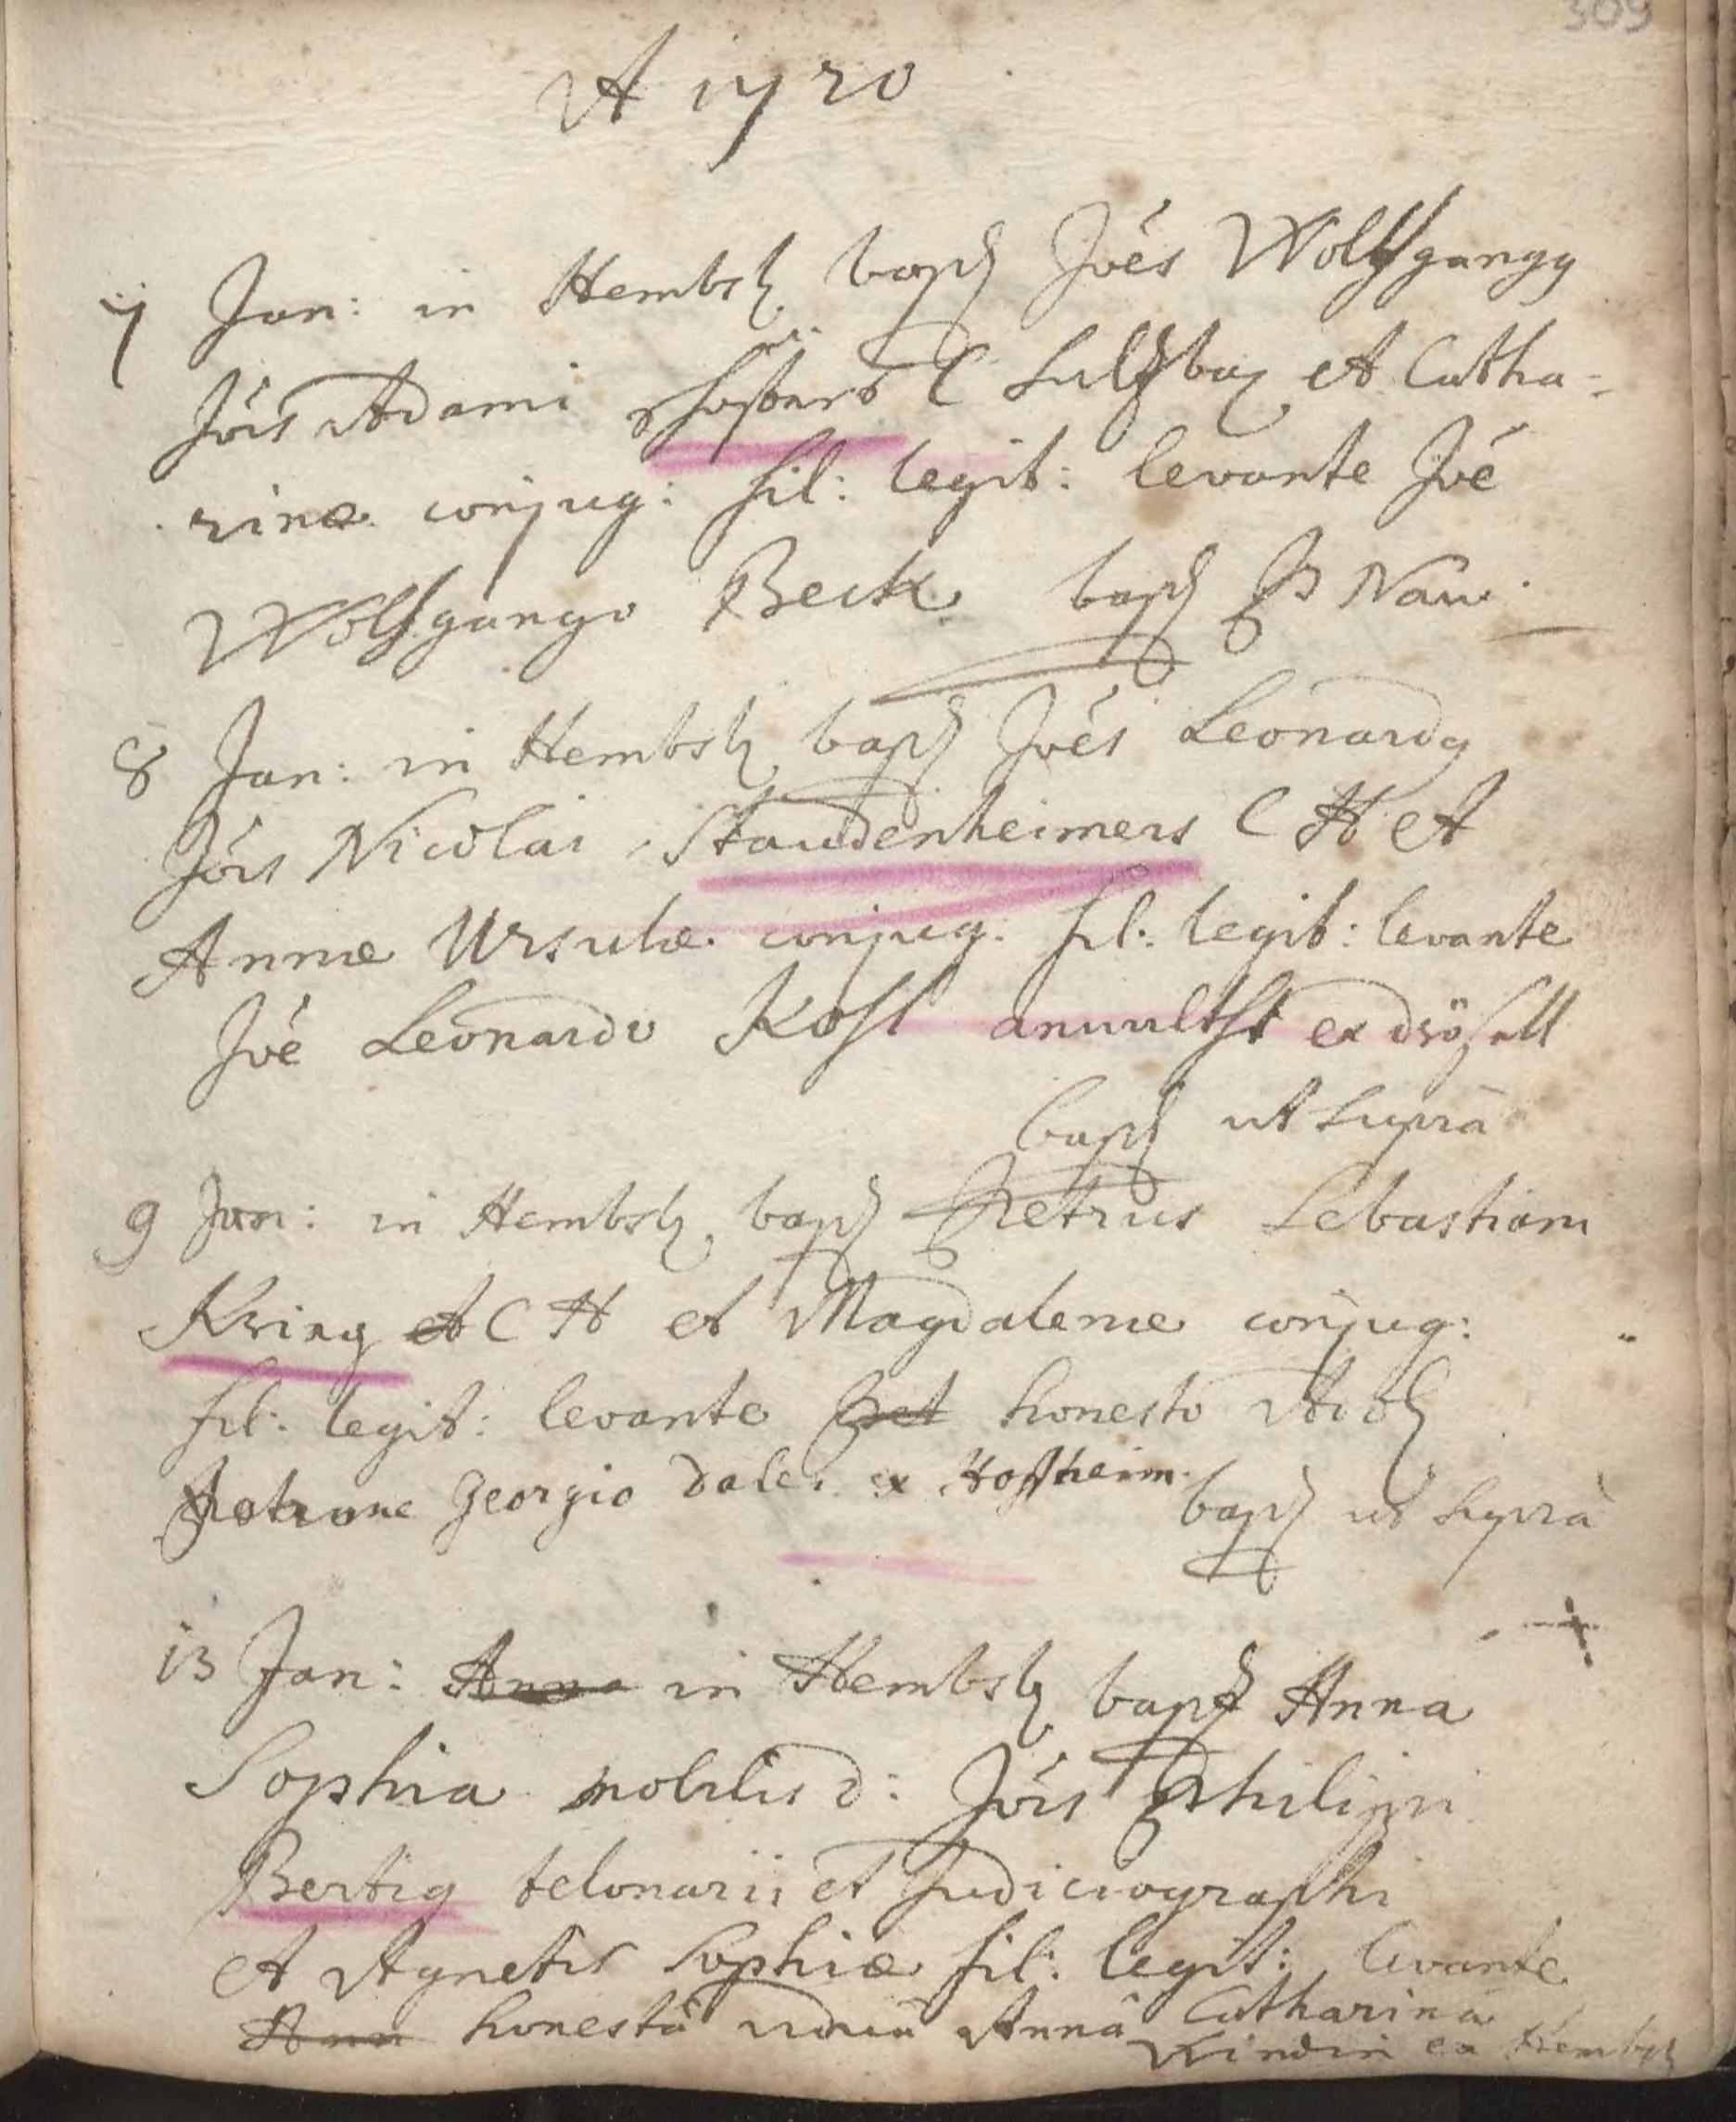 309
A 1720
7 Jan: in Hembsb. bapt Jōēs Wolfgangg
Jōīs Adami C Sulzbac et Catha=
rinæ conjug: fil: legit: levante Jōē
Wolfgango Beck bapt P Nau
8 Jan: in Hembsb. bapt Jōēs Leonardg
Jōīs Nicolai Staudenheimers C H et
Annæ Ursulæ conjug: fil: legit: levante
Jōē Leonardo Kohl ex
bapt ut supra
9 Jan: in Hembsb. bapt Petrus Sebastiani
Kring et C H et Magdalenæ conjug:
fil: legit: levante Pet honesto
Georgio ex Hofheim. bapt ut supra
13 Jan: Anna in Hembsb. bapt Anna
Sophia nobilis d: Jōīs Philippi
Bertig telonarii et Judiciographi
et Agnetis Sophiæ fil: legit: levante
Ann honestâ viduâ Annâ Catharinâ
ex Hembsb